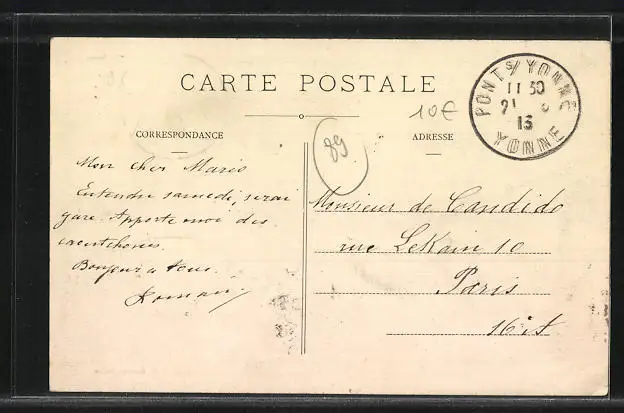 CARTE POSTALE
PONT S/YONNE
11 30
21 8
13
YONNE
10€
CORRESPONDANCE
ADRESSE
89
Mon cher Mario
Entendu samedi, serai
gare. Apporte moi des
Bonjour à tous.
Monsieur de Candido
rue LeKain 10
Paris
16e A